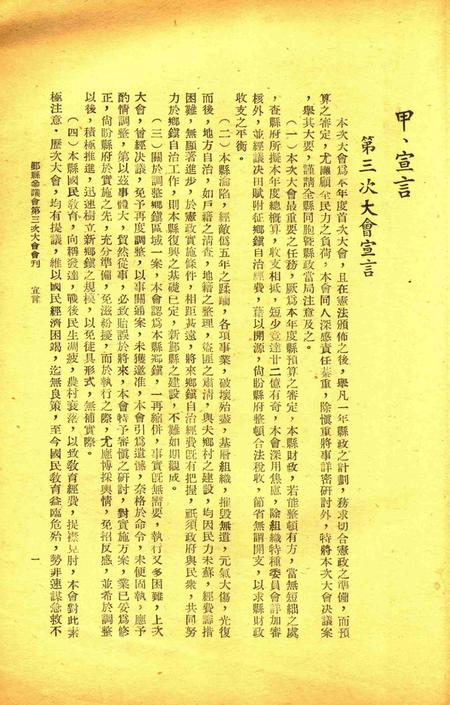 甲、宣言
第三次大會宣言
本次大會爲本年度首次大會，且在憲法頒佈之後，舉凡一年縣政之計劃，務求切合憲政之準備，而預
算之審定，尤應顧全民力之負荷，本會同人深感責任綦重，除愼重將事詳密研討外，特將本次大會決議案
，舉其大要，謹請全縣同胞暨縣政當局注意及之。
（一）本次大會最重要之任務，厥爲本年度縣預算之審定，本縣財政，若能整頓有方，當無短絀之處
，查縣府所擬本年度總概算，收支相抵，短少竟達廿二億有奇，本會深用焦慮，除組織特種委員會詳加審
核外，並經議决田賦附征鄉鎭自治經費，藉以開源，尙盼縣府整頓合法稅收，節省無謂開支，以求縣財政
收支之平衡。
（二）本縣淪陷，經敵僞五年之蹂躪，各項事業，破壞殆盡，基層組織，摧毀無遺，元氣大傷，光復
而後，地方自治，如戶籍之清查，地籍之整理，盜匪之肅清，與夫鄉村之建設，均因民力未蘇，經費籌措
困難，無顯著進步，於憲政實施條件，相距甚遠，將來鄉鎭自治經費旣有把握，祇須政府與民衆，共同努
力於鄉鎭自治工作，則本縣復興之基礎已定，新鄞縣之建設，不難如期觀成。
（三）關於調整鄉鎭區域一案，本會認爲本縣鄉鎭，一再縮併，事實旣無需要，執行又多困難，上次
大會，曾經決議，免予再度調整，以事關通案，未獲邀准，本會引爲遺憾，奈格於命令，未便固執，應予
酌情調整，第以茲事體大，貿然從事，必致貽誤於將來，本會特予審愼之研討，對實施方案，業已妥爲修
正，尙盼縣府於實施之先，充分準備，免滋紛擾，而於執行之際，尤應博採輿情，免招反感，並希於調整
以後，積極推進，迅速樹立新鄉鎭之規模，以免徒具形式，無補實際。
（四）本縣國民敎育，向稱發達，戰後民生凋疲，農村衰落，以致敎育經費，捉襟見肘，本會對此素
極注意，歷次大會，均有提議，維以國民經濟困竭，迄無良策，至今國民敎育益臨危殆，勢非速謀急救不
鄞縣參議會第三次大會會刊　宣言
一